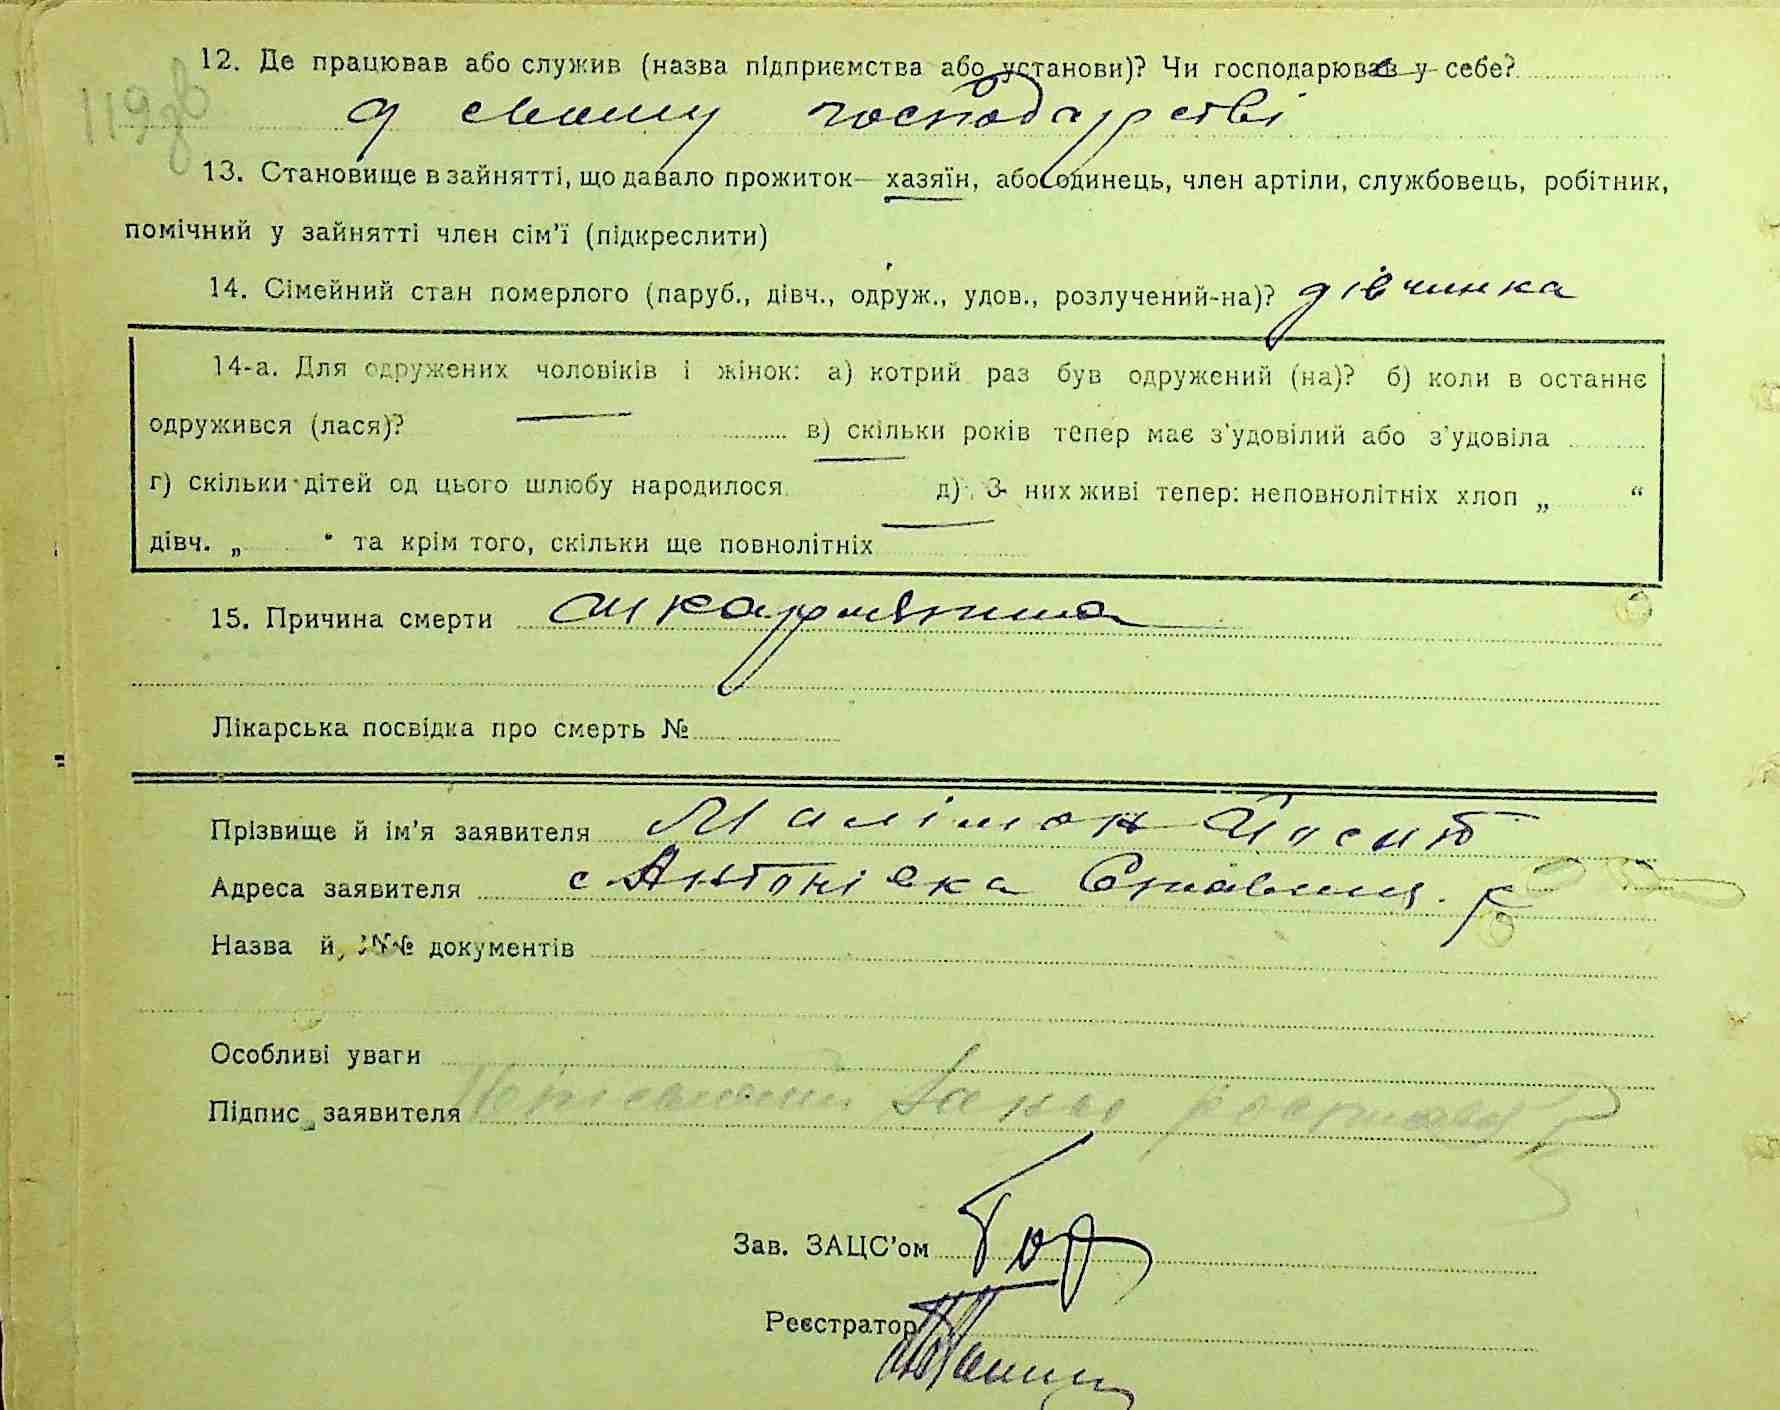 119зв
12. Де працював або служив (назва підприємства або установи)? Чи господарював у себе?
у своєму господарстві
13. Становище в зайнятті, що давало прожиток— хазяїн, або одинець, член артіли, службовець, робітник,
помічний у зайнятті член сім'ї (підкреслити)
14. Сімейний стан померлого (паруб., дівч., одруж., удов., розлучений-на)? дівчинка
14-а. Для одружених чоловіків і жінок: а) котрий раз був одружений (на)? б) коли в останнє
одружився (лася)? в) скільки років тепер має з'удовілий або з'удовіла
г) скільки дітей од цього шлюбу народилося д) З них живі тепер: неповнолітніх хлоп „ “
дівч. „ “ та крім того, скільки ще повнолітніх
15. Причина смерти шкарлятина
Лікарська посвідка про смерть №
Прізвище й ім'я заявителя Малімон Йосип
Адреса заявителя с Антонівка Ставищ. р
Назва й №№ документів
Особливі уваги
Підпис заявителя
Зав. ЗАЦС'ом
Реєстратор